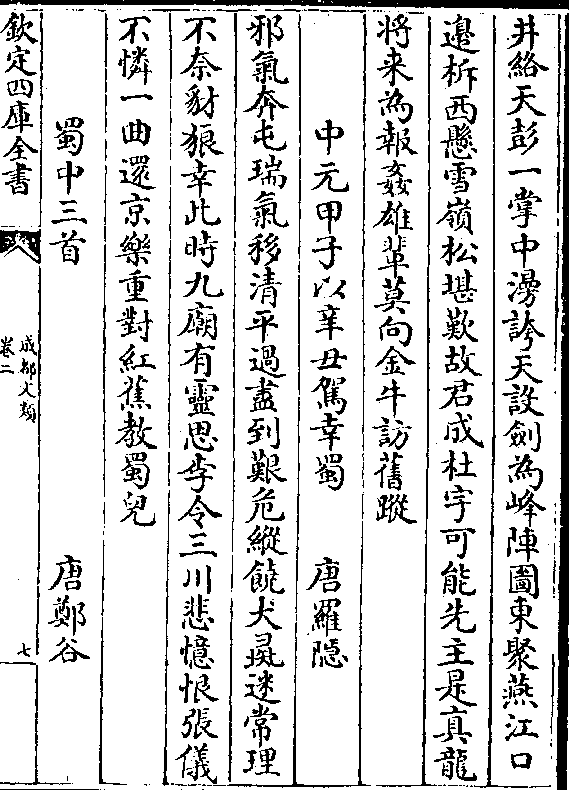 井絡天彭一掌中漫誇天設劍為峰陣圖東聚燕江口
邉柝西懸雪嶺松堪歎故君成杜宇可能先主是真龍
將来為報姦雄軰莫向金牛訪舊蹤
中元甲子以辛丑駕幸蜀　唐羅隠
邪氣奔屯瑞氣移清平過盡到艱危縱饒犬彘迷常理
不奈豺狼幸此時九廟有靈思李令三川悲憶恨張儀
不憐一曲還京樂重對紅蕉教蜀兒
蜀中三首　唐鄭谷
欽定四庫全書
成都文類
卷二
七